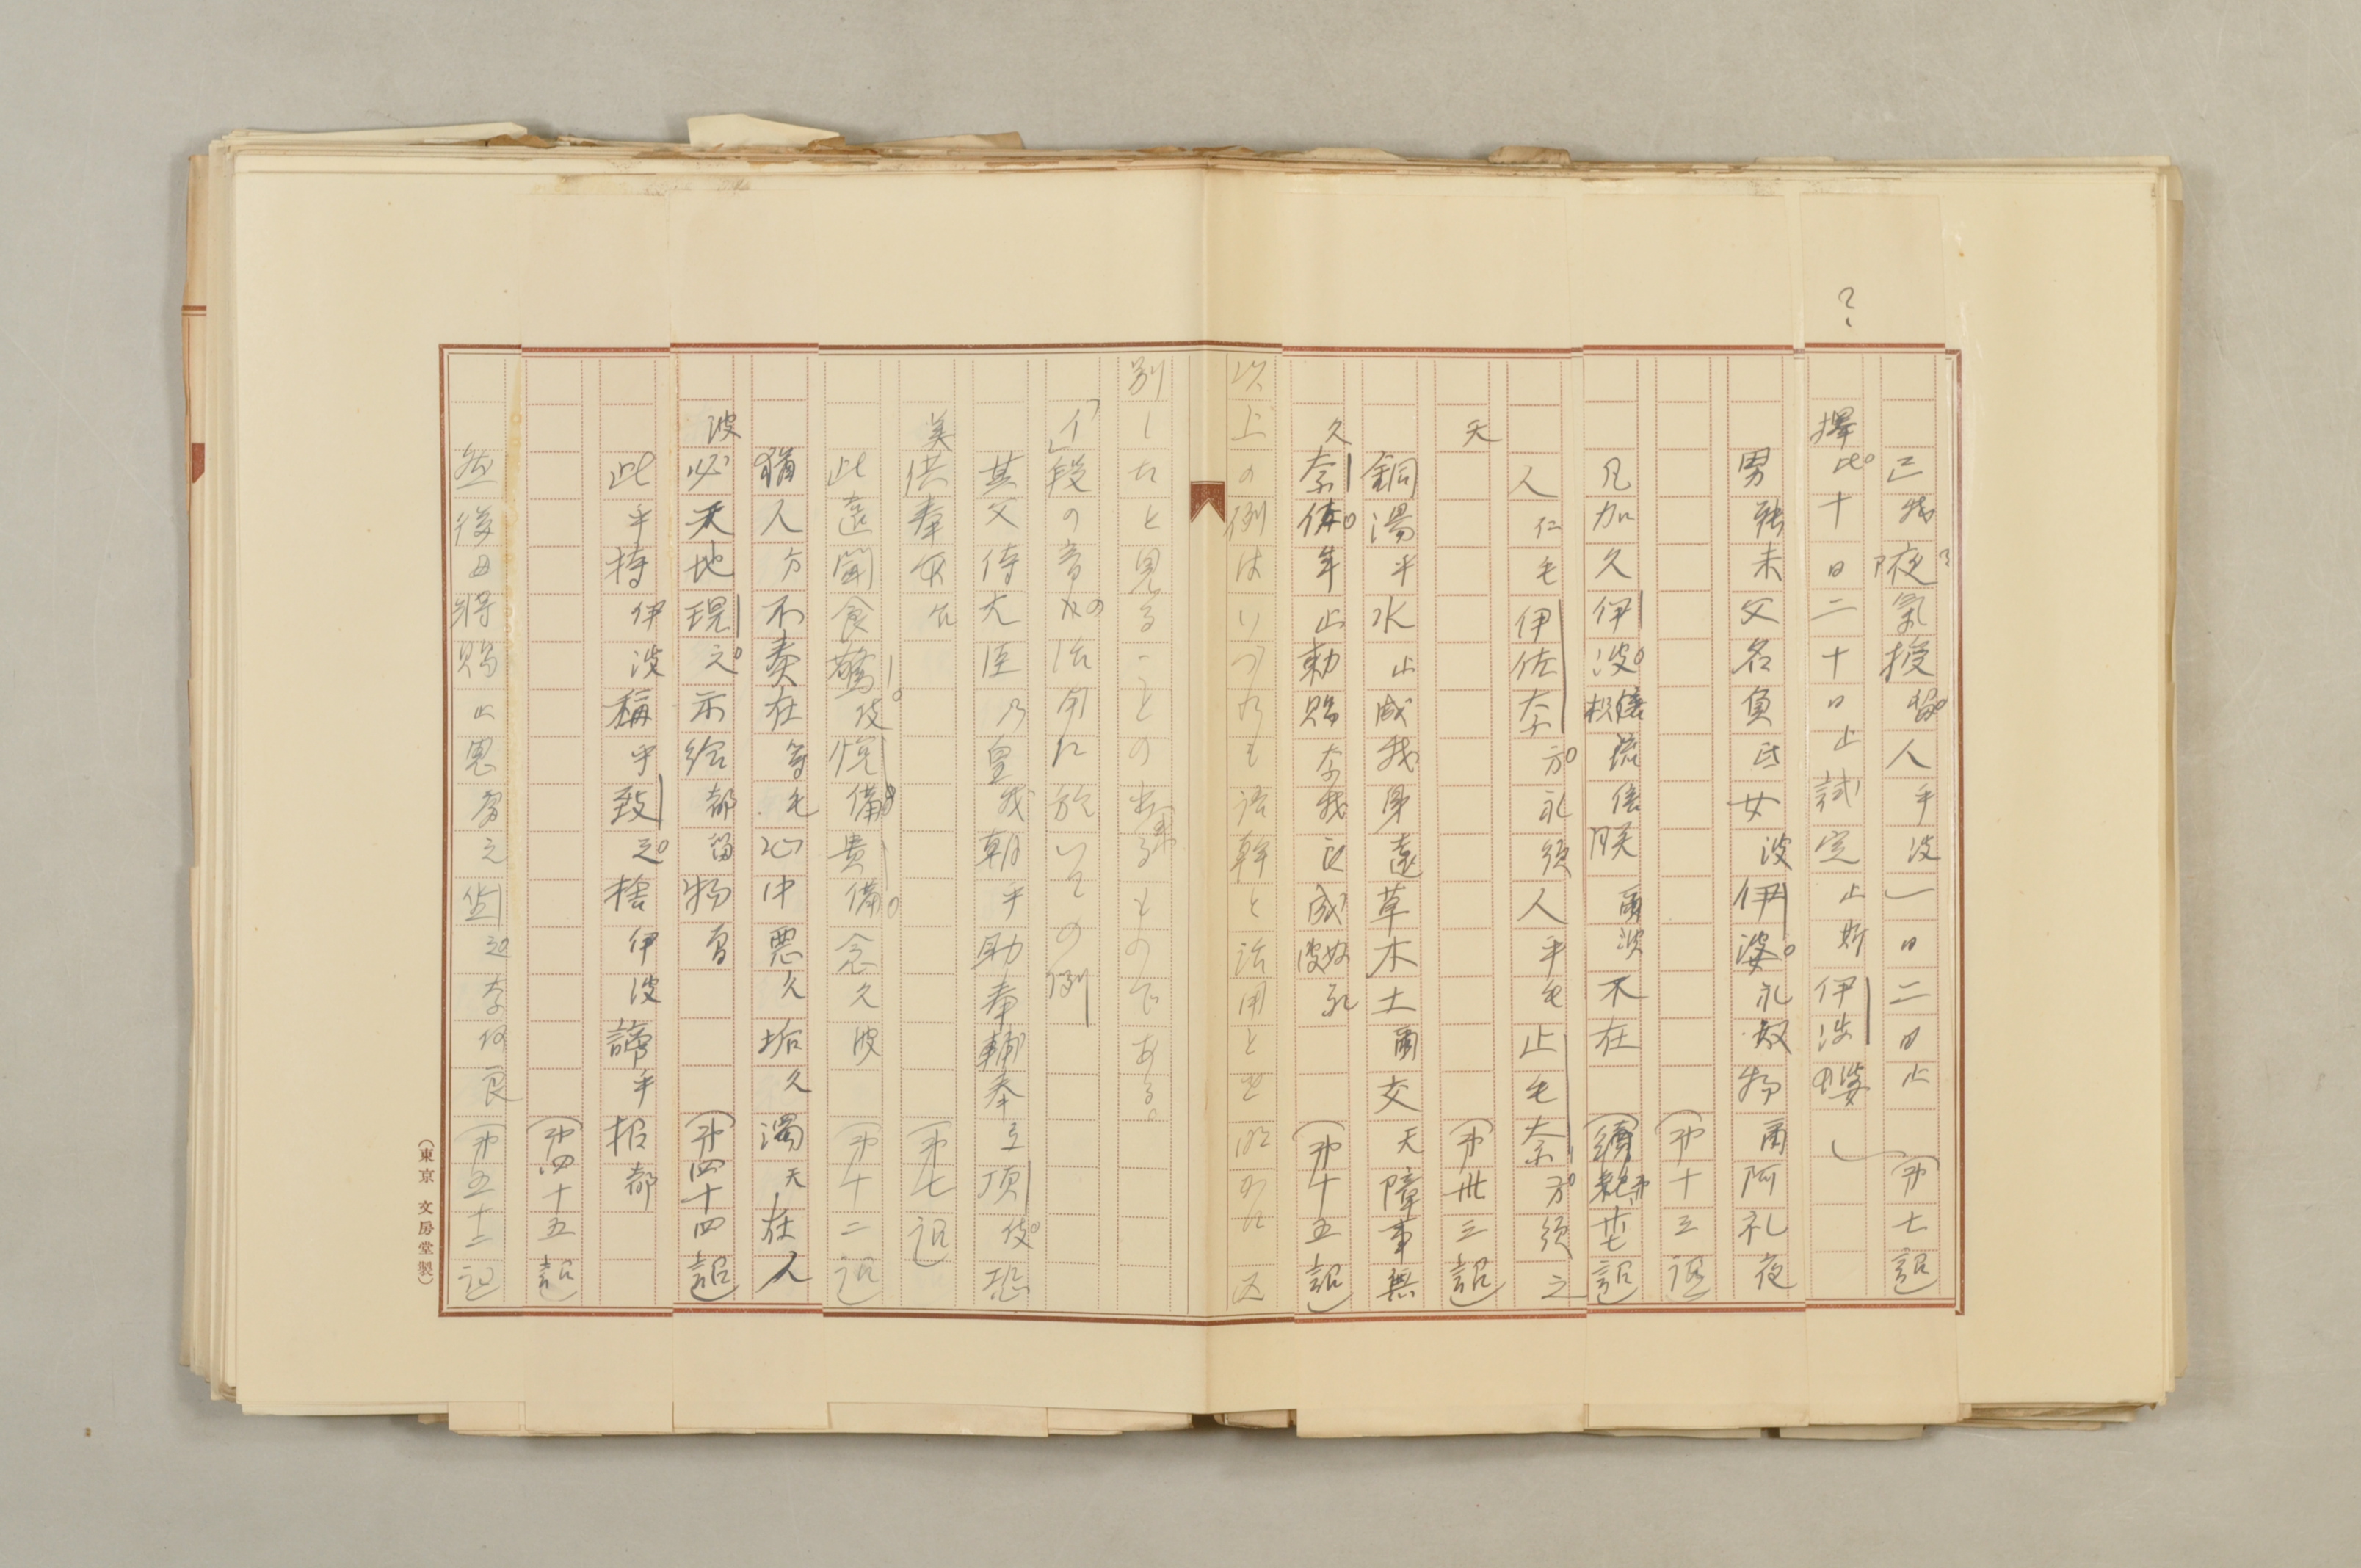 ?
己我夜氣授留人乎波一日二日止(第七詔)
擇比十日二十日止試定止斯伊波婆
男能未父名負氐女波伊婆礼奴物爾阿礼夜
(第十三詔)
凡加久伊波倍流倍朕爾波不在(續紀第廿七詔)
人仁毛伊佐奈方礼須人乎毛止毛奈方須之
天(第卅三詔)
銅湯乎水止成我身遠草木土爾交天障事無
久奈佐牟止勅賜奈我良成奴礼波(第十五詔)
以上の例はいづれも語幹と活用とを明かに区
別したと見ることの出来るものである。
「イ」段の音の活用に於いての例
其父侍大臣乃皇我朝乎助奉輔奉弖頂伎恐
美供奉(第七詔)
此遠聞食驚伎悦備貴備念久波(第十二詔)
猶人方不奏在等毛心中悪久垢久濁天在人
波必天地現之示給都留物曽(第四十四詔)
此乎持伊波稱乎致之捨伊波諦乎招都
(第四十五詔)
然後母將賜止思富之
(第五十二詔)
(東京 文房堂製)